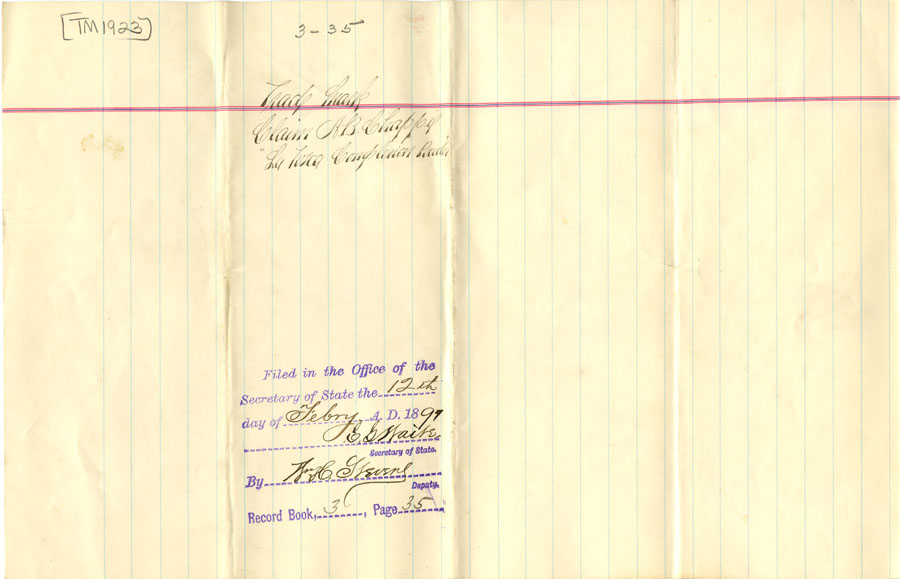 [TM1923]
3-35
Trade Mark
Claim A.B. Chappy
"La Tosca Complexion
Filed in the Office of the
Secretary of State the 12th
day of Febry A. D. 1897
E G Waite
Secretary of State.
By Wm C. Stevens
Deputy,
Record Book, 3, Page 35